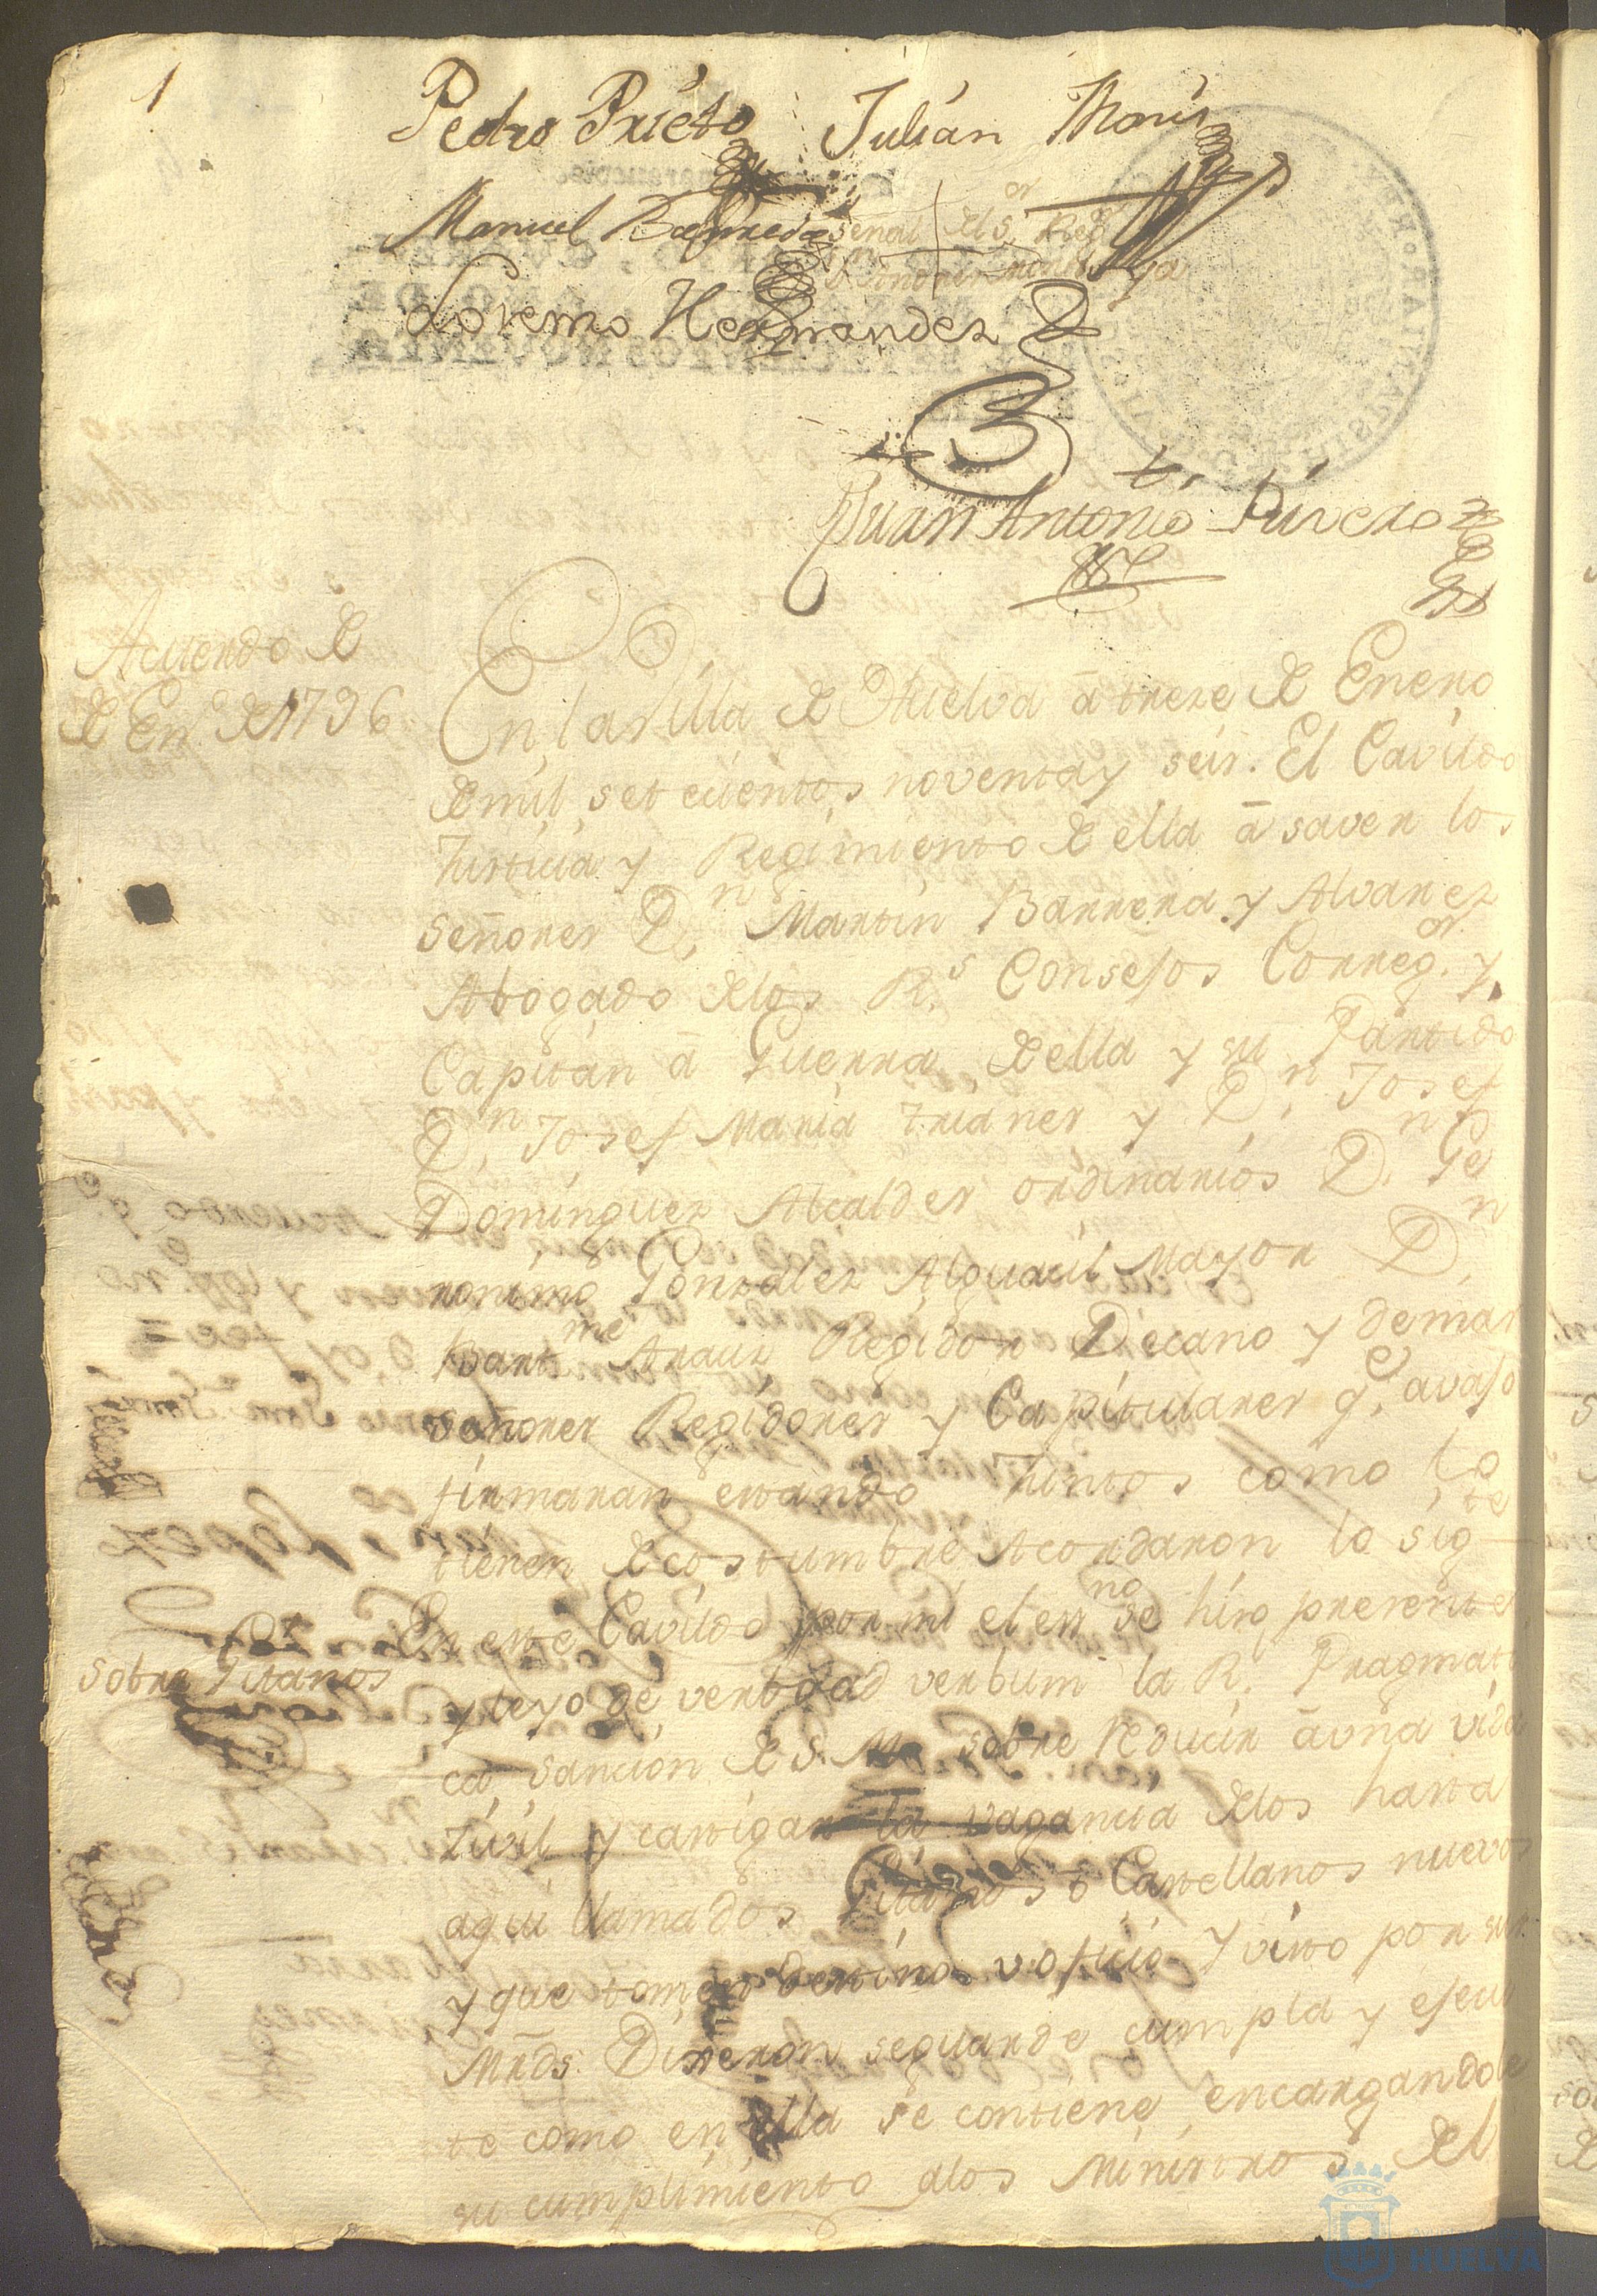 1
Pedro Prieto Julián
Manuel señal del Sr. Regr.
Lorenzo Hernandez
Juan Antonio Rivero
Acuerdo de
de Enº. de 1796
En la Villa de Huelva â treze de Enero
de mil setecientos noventa y seis. El Cavildo
Justicia y Regimiento de ella â saver los
señores Dn. Martin Barrera y Alvarez
Abogado delos Rs. Consejos Corregor. y
Capitan â Guerra de ella y su Partido
Dn. Josef Maria Trianes y Dn. Josef
Dominguez Alcaldes ordinarios Dn. Ge
ronimo Gonzalez Alguacil Mayor Dn.
Bartme. Arauz Regidor Decano y demas
señores Regidores y Capitulares qe. avajo
firmaran estando Juntos como lo
tienen de costumbre Acordaron lo sigte
Sobre Gitanos
En este Cavildo por mi el essno se hizo presente
y leyo de verbo ad verbum la Rl. Pragmati
ca sancion de S. M. sobre reducir â vña vida
Civil y castigar la vagancia delos hasta
aqui llamados Gitanos ô Castellanos nuevos
y que tomen destino v oficio y visto por sus
Mrds. Dixeron se guarde cumpla y efecu
te como en ella se contiene encargandole
su cumplimiento alos Ministros del
HUELVA